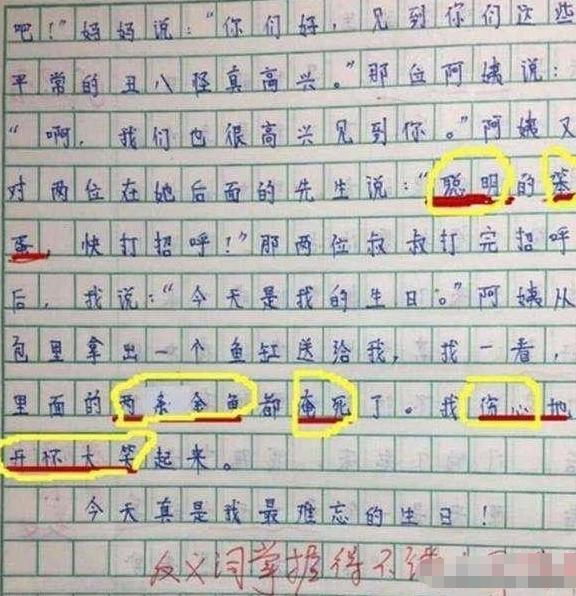 吧！”妈妈说：“你们好，见到你们这些
平常的丑八怪真高兴。”那位阿姨说：
“啊，我们也很高兴见到你。”阿姨又
对两位在她后面的先生说：“聪明的笨
蛋，快打招呼！”那两位叔叔打完招呼
后，我说：“今天是我的生日。”阿姨从
包里拿出一个鱼缸送给我，我一看，
里面的两条金鱼都淹死了。我伤心地
开怀大笑起来。
今天真是我最难忘的生日！
反义词掌握得不错